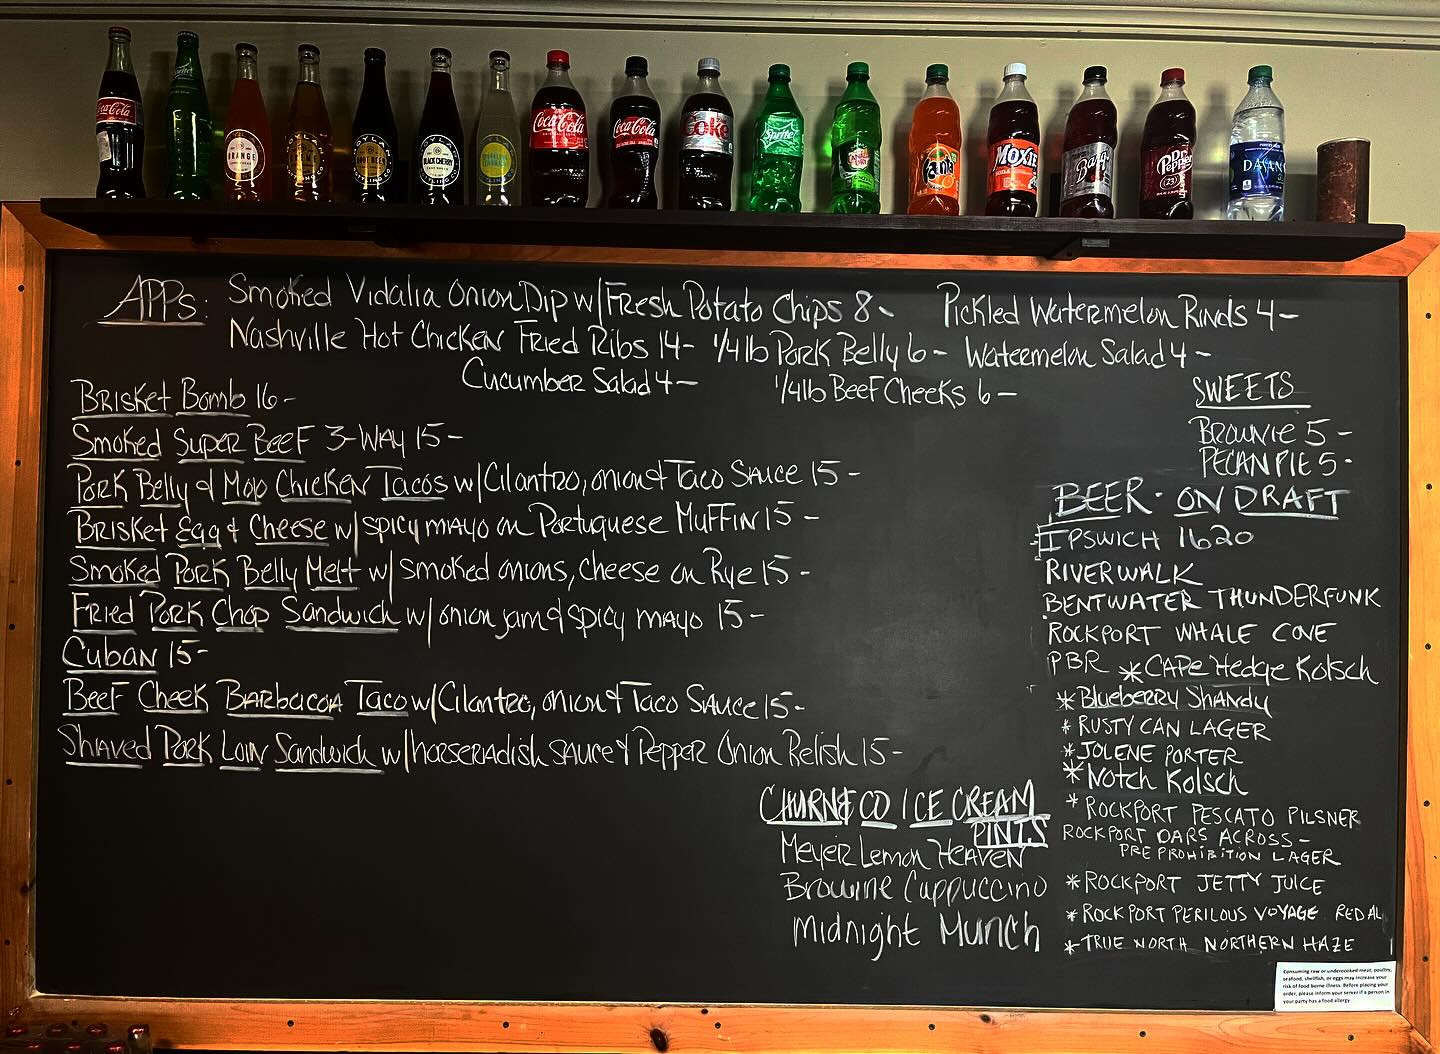 Coca-Cola
Sprite
ORANGE
ROOT BEER
BLACK CHERRY
Coca-Cola
Coca-Cola
Coke
Sprite
CANADA DRY
Fanta
MOXIE
Barq's
Dr Pepper
23
DASANI
APPs: Smoked Vidalia Onion Dip w/Fresh Potato Chips 8- Pickled Watermelon Rinds 4-
Nashville Hot Chicken Fried Ribs 14- 1/4 lb Pork Belly 6- Watermelon Salad 4-
Cucumber Salad 4- 1/4 lb Beef Cheeks 6-
Brisket Bomb 16-
Smoked Super Beef 3-Way 15-
Pork Belly & Mojo Chicken Tacos w/Cilantro, onion & Taco Sauce 15-
Brisket Egg & Cheese w/spicy mayo on Portuguese Muffin 15-
Smoked Pork Belly Melt w/smoked onions, cheese on Rye 15-
Fried Pork Chop Sandwich w/onion jam & spicy mayo 15-
Cuban 15-
Beef Cheek Barbacoa Taco w/Cilantro, onion & Taco Sauce 15-
Shaved Pork Loin Sandwich w/horseradish sauce & Pepper Onion Relish 15-
SWEETS
BROWNIE 5-
PECAN PIE 5-
BEER - ON DRAFT
IPSWICH 1620
RIVERWALK
BENTWATER THUNDERFUNK
ROCKPORT WHALE COVE
PBR *CAPE Hedge Kolsch
*Blueberry Shandy
*RUSTY CAN LAGER
*JOLENE PORTER
*Notch Kolsch
*ROCKPORT PESCATO PILSNER
ROCKPORT OARS ACROSS-
PRE PROHIBITION LAGER
*ROCKPORT JETTY JUICE
*ROCKPORT PERILOUS VOYAGE RED AL
*TRUE NORTH NORTHERN HAZE
CHURN & CO ICE CREAM
PINTS
Meyer Lemon Heaven
Browine Cappuccino
Midnight Munch
Consuming raw or undercooked meat, poultry,
seafood, shellfish, or eggs may increase your
risk of food borne illness. Before placing your
order, please inform your server if a person in
your party has a food allergy.